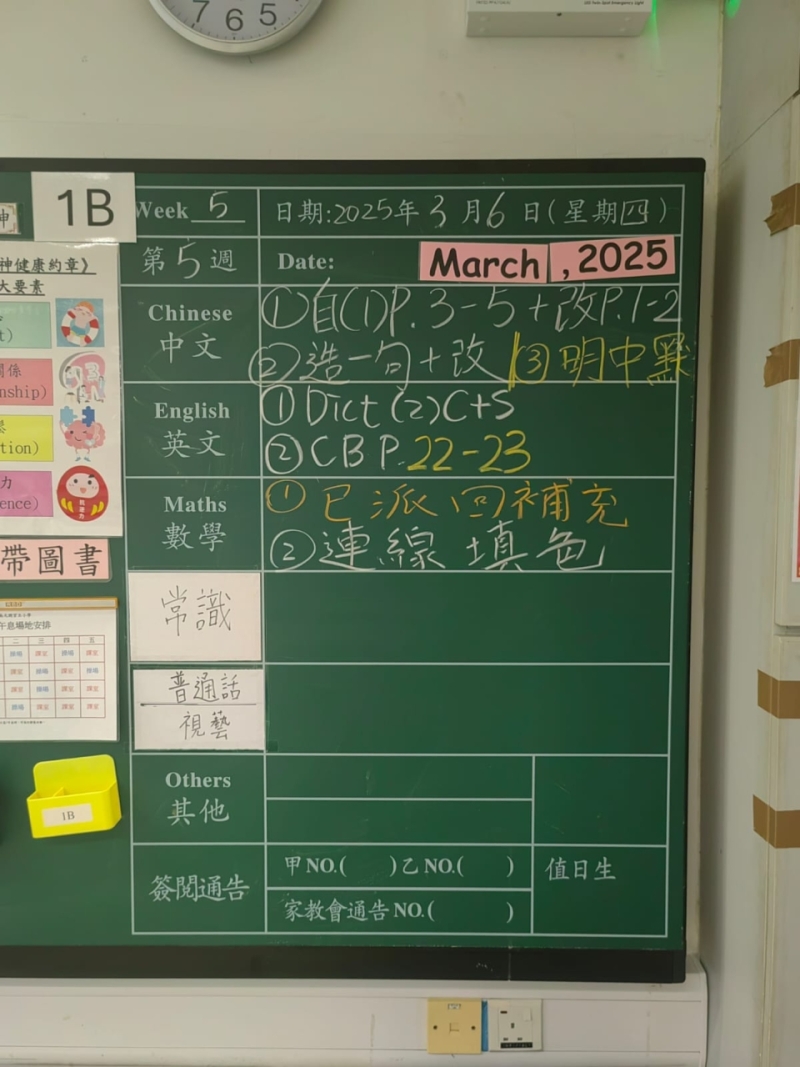 7 6 5
1B
Week 5
日期:2025年3月6日(星期四)
第5週
Date: March , 2025
神健康約章》
大要素
係
nship)
tion)
力
ence)
帶圖書
Chinese
中文
①自(1)P.3-5+改P.1-2
②造一句+改 ③明中默
English
英文
①Dict(2)C+S
②CB P.22-23
Maths
數學
①已派回補充
②連線填色
常識
普通話
視藝
Others
其他
1B
簽閱通告
甲NO.( )乙NO.( )
家教會通告NO.( )
值日生